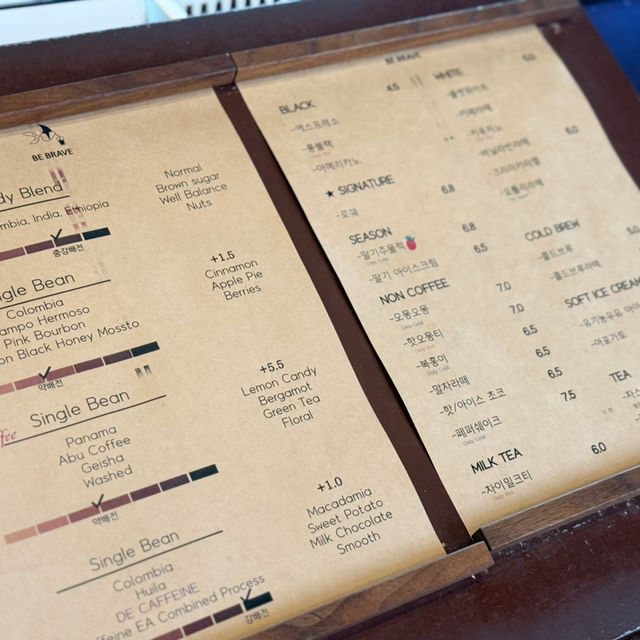 BE BRAVE
dy Blend
mbia, India, Ethiopia
중강배전
Normal
Brown sugar
Well Balance
Nuts
ngle Bean
Colombia
ampo Hermoso
Pink Bourbon
on Black Honey Mossto
약배전
+1.5
Cinnamon
Apple Pie
Berries
ffee
Single Bean
Panama
Abu Coffee
Geisha
Washed
약배전
+5.5
Lemon Candy
Bergamot
Green Tea
Floral
Single Bean
Colombia
Huila
DE CAFFEINE
ffeine EA Combined Process
강배전
+1.0
Macadamia
Sweet Potato
Milk Chocolate
Smooth
BE BRAVE
BLACK 4.5
-에스프레소
-롱블랙
-아메리카노
★ SIGNATURE 6.8
-로쉐
SEASON 6.8
-딸기주물럭
Only Cold
-딸기 아이스크림 6.5
NON COFFEE 7.0
-오몽오몽
Only Cold
-핫오몽티 7.0
Only Hot
-복홍이 6.5
Only Cold
-말차라떼 6.5
-핫/아이스 초코 6.5
-페퍼쉐이크 7.5
Only Cold
MILK TEA 6.0
-차이밀크티
WHITE 5.0
-플랫화이트
-카페라떼
-카푸치노
-바닐라빈라떼 6.0
-크리미카라멜
COLD BREW 5.0
-콜드브루
-콜드브루라떼
SOFT ICE CREAM
-유기농우유 아이
-아포가토
TEA